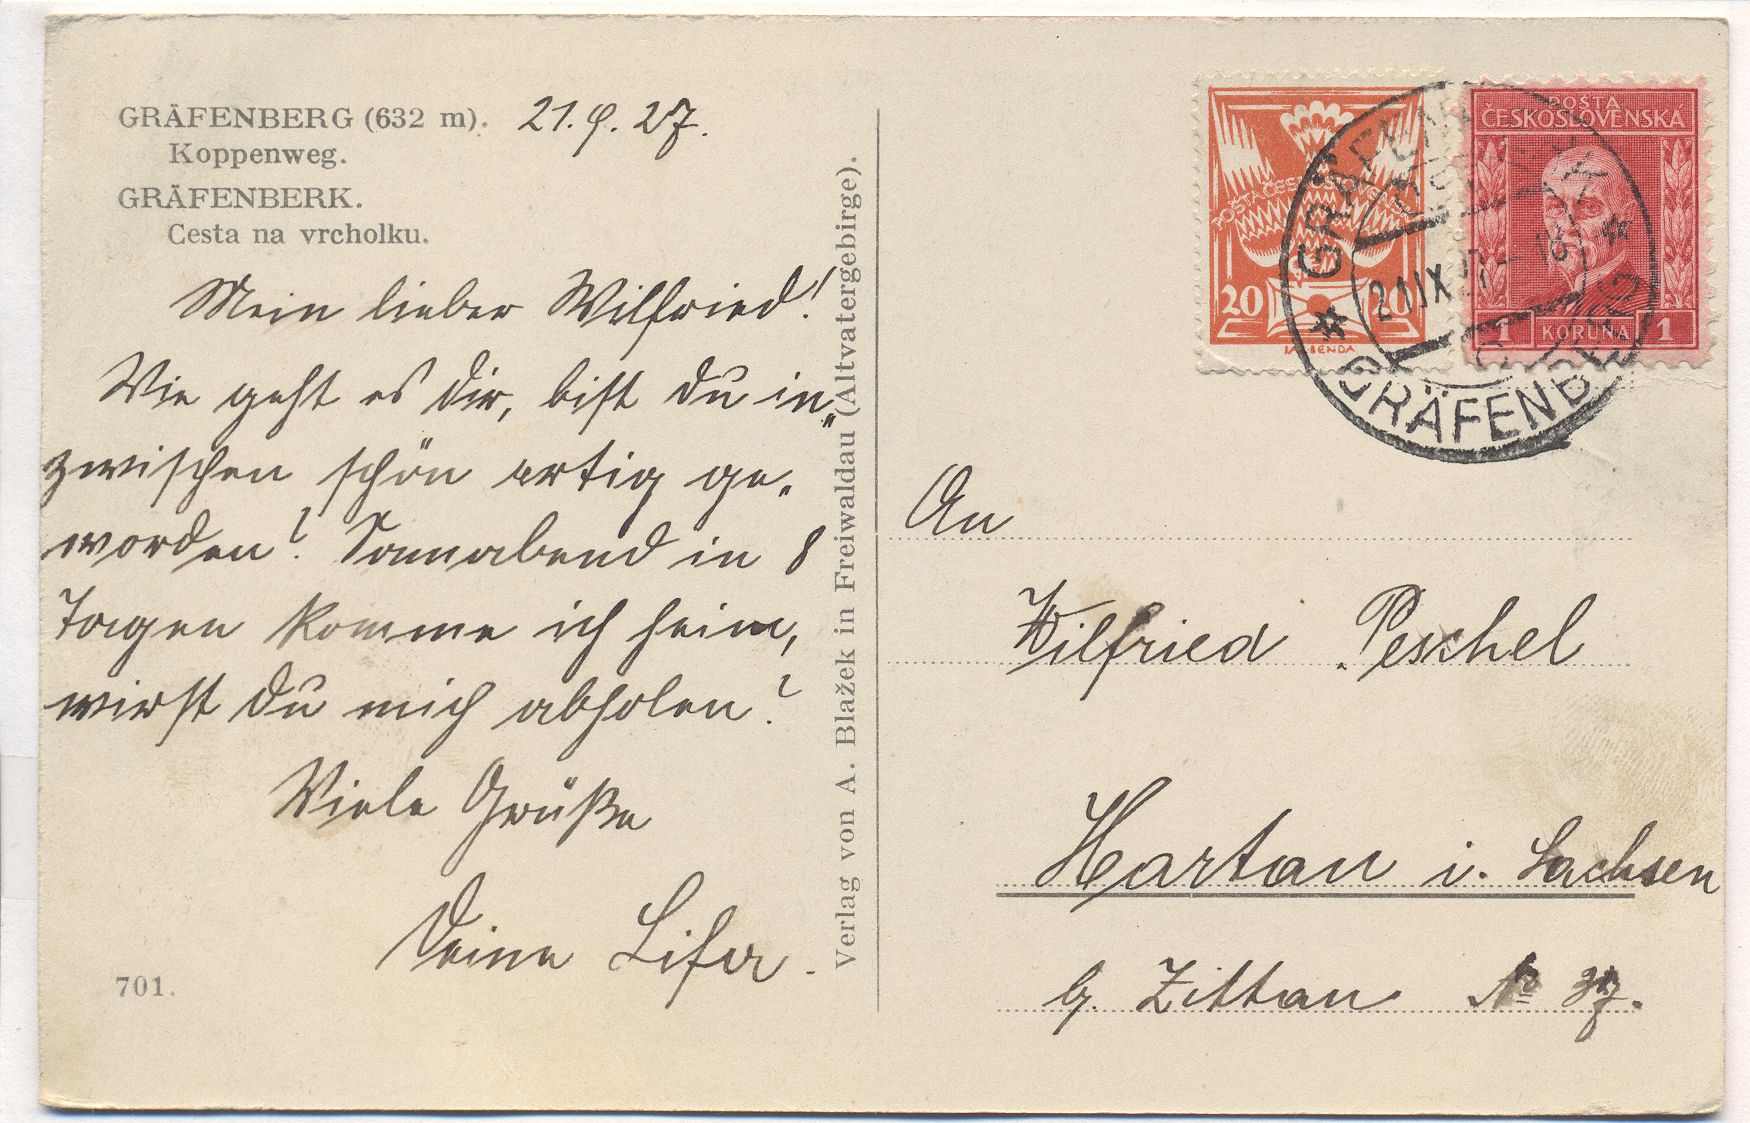 GRÄFENBERG (632 m). 21. 9. 27.
Koppenweg.
GRÄFENBERK.
Cesta na vrcholku.
Mein lieber Wilfried!
Wie geht es dir, bist du in„
zwischen schön artig ge„
worden? Sonnabend in 8
Tagen komme ich heim,
wirst du mich abholen?
Viele Grüße
Deine
701.
Verlag von A. Blažek in Freiwaldau (Altvatergebirge).
POŠTA ČESKOSLOVENSKÁ
20 20
POŠTA
ČESKOSLOVENSKÁ
1 KORUNA 1
GRÄFENBERK
21 IX 27 - 18
GRÄFENBERG
An
Wilfried Peschel
Hartau i. Sachsen
b. Zittau No 37.